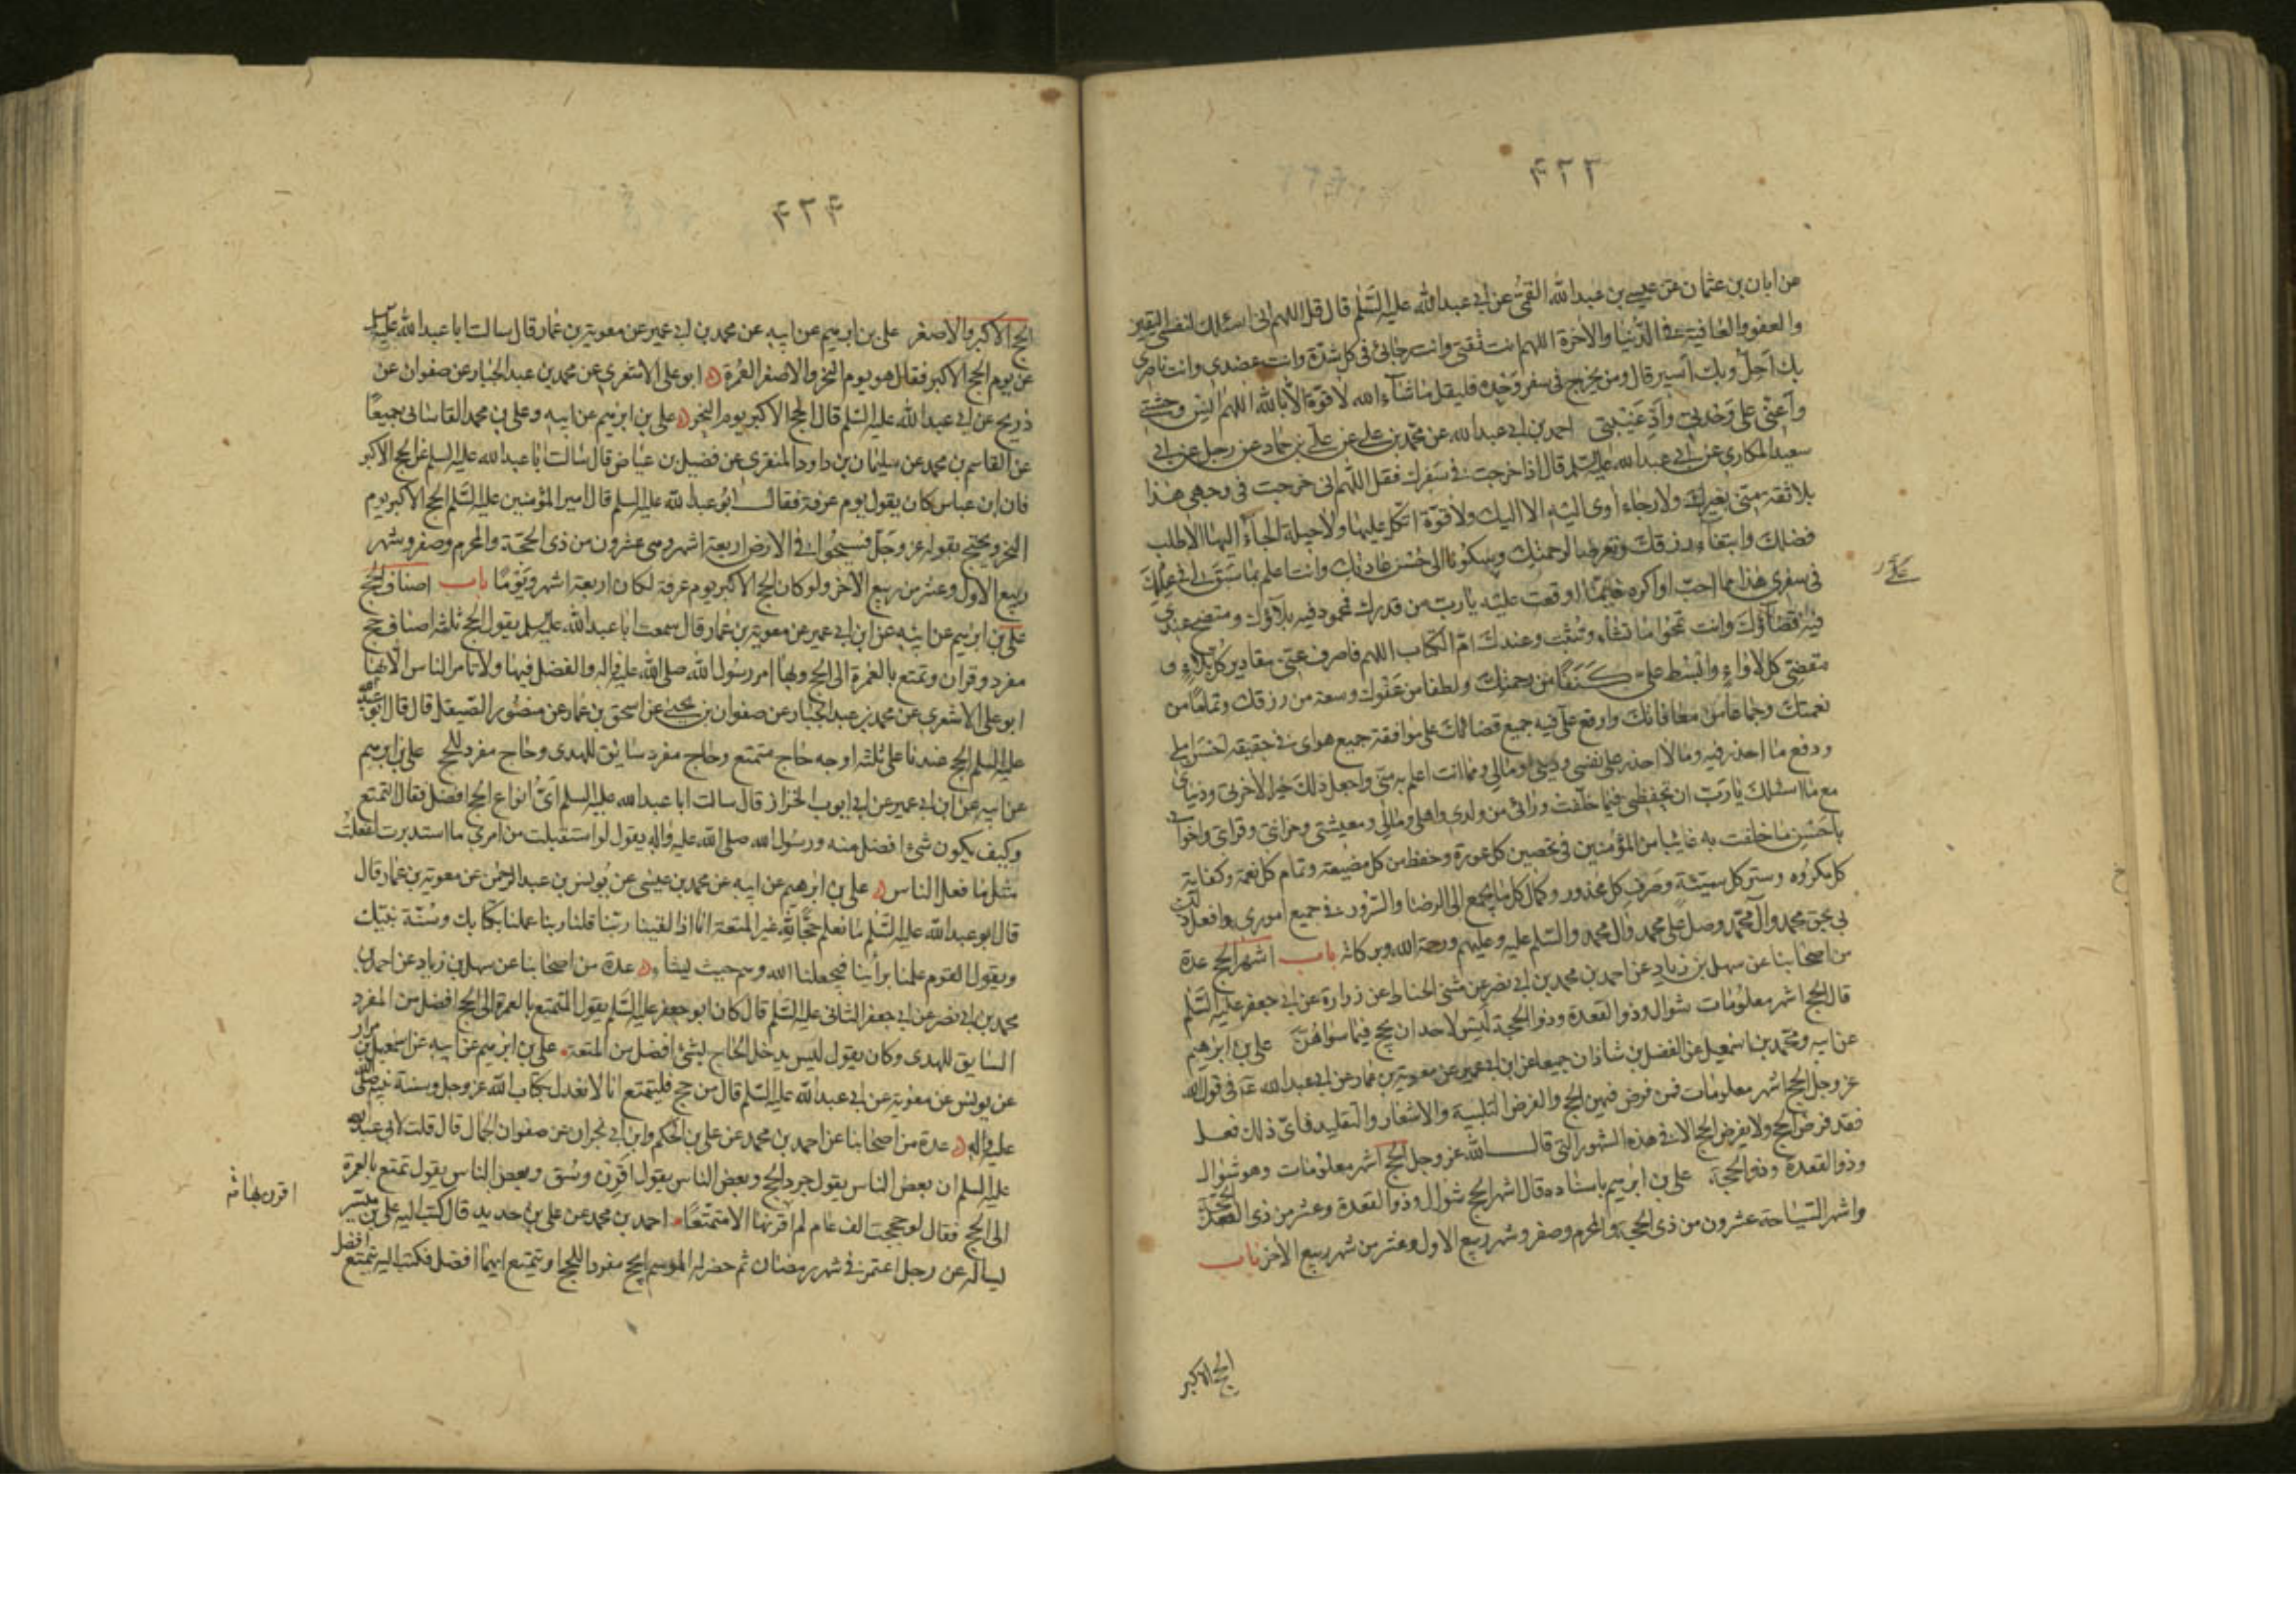 ۴۲۳
عن ابان بن عثمان عن عيسى بن عبدالله القمى عن ابى عبدالله عليه السلم قال قل اللهم انى اسئلك لنفسى اليقين
والعفو والعافية فى الدنيا والاخرة اللهم انت ثقتى وانت رجائى فى كل شدة وانت عضدى وانت ناصرى
بك احل وبك اسير قال ومن يخرج فى سفر وحده فليقل ما شاء الله لا قوة الا بالله اللهم انس وحشتى
واعنى على وحدتى وادّ غيبتى احمد بن ابى عبدالله عن محمد بن على عن على بن حماد عن رجل عن ابى
سعيد المكارى عن ابى عبدالله عليه السلم قال اذا خرجت فى سفرك فقل اللهم انى خرجت فى وجهى هذا
بلا ثقة منى بغيرك ولا رجاء اوى اليه الا اليك ولا قوة اتكل عليها ولا حيلة الجأ اليها الا طلب
فضلك وابتغاء رزقك وتعرضا لرحمتك وسكونا الى حسن عادتك وانت اعلم بما سبق لى فى علمك
فى سفرى هذا مما احب او اكره فايّما اوقعت عليه يا رب من قدرك فمحمود فيه بلاؤك ومتضح عندى
فيه قضاؤك وانت تمحو ما تشاء وتثبت وعندك ام الكتاب اللهم فاصرف عنى مقادير كل بلاء و
مقضى كل لاواء وابسط على كنفا من رحمتك ولطفا من عفوك وسعة من رزقك وتماما من
نعمتك وجماعا من معافاتك واوقع على فيه جميع قضائك على موافقة جميع هواى فى حقيقة احسن املى
ودفع ما احذر فيه وما لا احذر على نفسى ودينى ومالى ومما انت اعلم به منى واجعل ذلك خيرا لاخرتى ودنياى
مع ما اسئلك يا رب ان تحفظنى فيما خلفت ورائى من ولدى واهلى ومالى ومعيشتى وحزانتى وقرابتى واخوانى
باحسن ما خلفت به غائبا من المؤمنين فى تحصين كل عورة وحفظ من كل مضيعة وتمام كل نعمة وكفاية
كل مكروه وستر كل سيئة وصرف كل محذور وكمال كل ما يجمع الى الرضا والسرور فى جميع امورى وافعل ذلك
بى بحق محمد وآل محمد وصل على محمد وال محمد والسلم عليه وعليهم ورحمة الله وبركاته باب اشهر الحج عدة
من اصحابنا عن سهل بن زياد عن احمد بن محمد بن ابى نصر عن مثنى الحناط عن زرارة عن ابى جعفر عليه السلم
قال الحج اشهر معلومات شوال وذوالقعدة وذوالحجة ليس لاحد ان يحج فيما سواهن على بن ابرهيم
عن ابيه ومحمد بن اسمعيل عن الفضل بن شاذان جميعا عن ابن ابى عمير عن معوية بن عمار عن ابى عبدالله عه فى قول الله
عز وجل الحج اشهر معلومات فمن فرض فيهن الحج والفرض التلبية والاشعار والتقليد فاى ذلك فعل
فقد فرض الحج ولا يفرض الحج الا فى هذه الشهور التى قال الله عز وجل الحج اشهر معلومات وهو شوال
وذوالقعدة وذوالحجة على بن ابرهيم باسناده قال اشهر الحج شوال وذوالقعدة وعشر من ذى القعدة الحجة
واشهر السياحة عشرون من ذى الحجة والمحرم وصفر وشهر ربيع الاول وعشر من شهر ربيع الاخر باب
الحج الاكبر
۴۲۴
الحج الاكبر والاصغر على بن ابرهيم عن ابيه عن محمد بن ابى عمير عن معوية بن عمار قال سالت ابا عبدالله عليه السلم
عن يوم الحج الاكبر فقال هو يوم النحر والاصغر العمرة ابو على الاشعرى عن محمد بن عبد الجبار عن صفوان عن
ذريح عن ابى عبدالله عليه السلم قال الحج الاكبر يوم النحر على بن ابرهيم عن ابيه وعلى بن محمد القاسانى جميعًا
عن القاسم بن محمد عن سليمان بن داود المنقرى عن فضيل بن عياض قال سالت ابا عبدالله عليه السلم عن الحج الاكبر
فان ابن عباس كان يقول يوم عرفة فقال ابو عبدالله عليه السلم قال امير المؤمنين عليه السلم الحج الاكبر يوم
النحر ويحتج بقوله عز وجل فسيحوا فى الارض اربعة اشهر وهى عشرون من ذى الحجة والمحرم وصفر وشهر
ربيع الاول وعشر من ربيع الاخر ولو كان الحج الاكبر يوم عرفة لكان اربعة اشهر ويومًا باب اصناف الحج
على بن ابرهيم عن ابيه عن ابن ابى عمير عن معوية بن عمار قال سمعت ابا عبدالله عليه السلم يقول الحج ثلثة اصناف حج
مفرد وقران وتمتع بالعمرة الى الحج وبها امر رسول الله صلى الله عليه واله والفضل فيها ولا نامر الناس الا بها
ابو على الاشعرى عن محمد بن عبدالجبار عن صفوان بن يحيى عن اسحق بن عمار عن منصور الصيقل قال قال ابو عبدالله
عليه السلم الحج عندنا على ثلثة اوجه حاج متمتع وحاج مفرد سايق للهدى وحاج مفرد للحج على بن ابرهيم
عن ابيه عن ابن ابى عمير عن ابى ايوب الخزاز قال سالت ابا عبدالله عليه السلم اىّ انواع الحج افضل فقال التمتع
وكيف يكون شئ افضل منه ورسول الله صلى الله عليه واله يقول لو استقبلت من امرى ما استدبرت لفعلت
مثل ما فعل الناس على بن ابرهيم عن ابيه عن محمد بن عيسى عن يونس بن عبد الرحمن عن معوية بن عمار قال
قال ابو عبدالله عليه السلم ما نعلم حجًّا لله غير المتعة انا اذا لقينا ربنا قلنا ربنا عملنا بكتابك وسنة نبيك
ويقول القوم علمنا برأينا فيجعلنا الله وهم حيث يشاء عدة من اصحابنا عن سهل بن زياد عن احمد بن
محمد بن ابى نصر عن ابى جعفر الثانى عليه السلم قال كان ابو جعفر عليه السلم يقول المتمتع بالعمرة الى الحج افضل من المفرد
السايق للهدى وكان يقول ليس يدخل الحاج بشئ افضل من المتعة على بن ابرهيم عن ابيه عن اسمعيل بن مرار
عن يونس عن معوية عن ابى عبدالله عليه السلم قال من حج فليتمتع انا لا نعدل بكتاب الله عز وجل وسنة نبيه صلى الله
عليه واله عدة من اصحابنا عن احمد بن محمد عن على بن الحكم وابن ابى نجران عن صفوان الجمال قال قلت لابى عبدالله
عليه السلم ان بعض الناس يقول جرد الحج وبعض الناس يقول اقرن وسق وبعض الناس يقول تمتع بالعمرة
الى الحج فقال لو حججت الف عام لم اقرنها الا متمتعًا احمد بن محمد عن على بن حديد قال كتب اليه على بن ميسر
يساله عن رجل اعتمر فى شهر رمضان ثم حضر له الموسم ايحج مفردا للحج او يتمتع ايهما افضل فكتب اليه يتمتع افضل